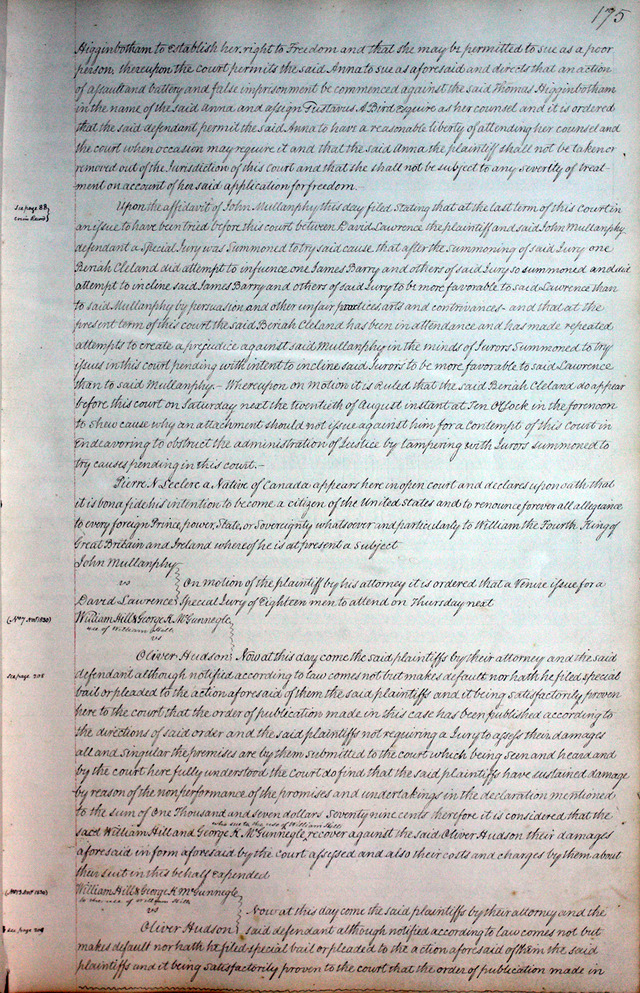 175
Higginbotham to establish her right to Freedom and that she may be permitted to sue as a poor
person, thereupon the court permits the said Anna to sue as aforesaid and directs that an action
of assault and battery and false imprisonment be commenced against the said Thomas Higginbotham
in the name of the said Anna and assign Gustavus A Bird Esquire as her counsel and it is ordered
that the said defendant permit the said Anna to have a reasonable liberty of attending her counsel and
the court when occasion may require it and that the said Anna the plaintiff shall not be taken or
removed out of the Jurisdiction of this Court and that she shall not be subject to any severity of treat-
ment on account of her said application for freedom.
See page 88
Upon the affidavit of John Mullanphy this day filed Stating that at the last term of this court in
an issue to have been tried before this court between David Lawrence the plaintiff and said John Mullanphy
defendant a Special Jury was Summoned to try said cause that after the Summoning of said Jury one
Beriah Cleland did attempt to infuence one James Barry and others of said Jury so summoned and did
attempt to incline said James Barry and others of said Jury to be more favorable to said Lawrence than
to said Mullanphy by persuasion and other unfair practices arts and contrivances - and that at the
present term of this court the said Beriah Cleland has been in attendance and has made repeated
attempts to create a prejudice against said Mullanphy in the minds of Jurors Summoned to try
issues in this court pending with intent to incline said Jurors to be more favorable to said Lawrence
than to said Mullanphy. - Whereupon on motion it is Ruled that the said Beriah Cleland do appear
before this court on Saturday next the twentieth of August instant at Ten OClock in the forenoon
to shew cause why an attachment should not issue against him for a contempt of this Court in
Endeavoring to obstruct the administration of Justice by tampering with Jurors summoned to
try causes pending in this court. -
Pierre N. Leclerc a Native of Canada appears here in open court and declares upon oath that
it is bona fide his intention to become a citizen of the United States and to renounce forever all allegiance
to every foreign Prince, power, State, or Sovereignty whatsoever and particularly to William the Fourth King of
Great Britain and Ireland whereof he is at present a Subject
John Mullanphy
vs
On motion of the plaintiff by his attorney it is ordered that a Venire issue for a
David Lawrence Special Jury of Eighteen men to attend on Thursday next
William Hill & George K. McGunnegle
use of William Hill
vs
Oliver Hudson Now at this day come the said plaintiffs by their attorney and the said
see page 208
defendant although notified according to law comes not but makes default nor hath he filed special
bail or pleaded to the action aforesaid of them the said plaintiffs and it being satisfactorily proven
here to the court that the order of publication made in this case has been published according to
the directions of said order and the said plaintiffs not requiring a Jury to assess their damages
all and singular the premises are by them submitted to the court which being seen and heard and
by the court here fully understood the court do find that the said plaintiffs have sustained damage
by reason of the nonperformance of the promises and undertakings in the declaration mentioned
to the sum of One Thousand and seven dollars Seventy nine cents therefore it is considered that the
said William Hill and George K. McGunnegle who sue to the use of William Hill recover against the said Oliver Hudson their damages
aforesaid in form aforesaid by the court assessed and also their costs and charges by them about
their suit in this behalf expended
William Hill & George K. McGunnegle
to the use of William Hill
vs
Now at this day come the said plaintiffs by their attorney and the
see page 208
Oliver Hudson said defendant although notified according to law comes not but
makes default nor hath he filed special bail or pleaded to the action aforesaid of them the said
plaintiffs and it being satisfactorily proven to the court that the order of publication made in